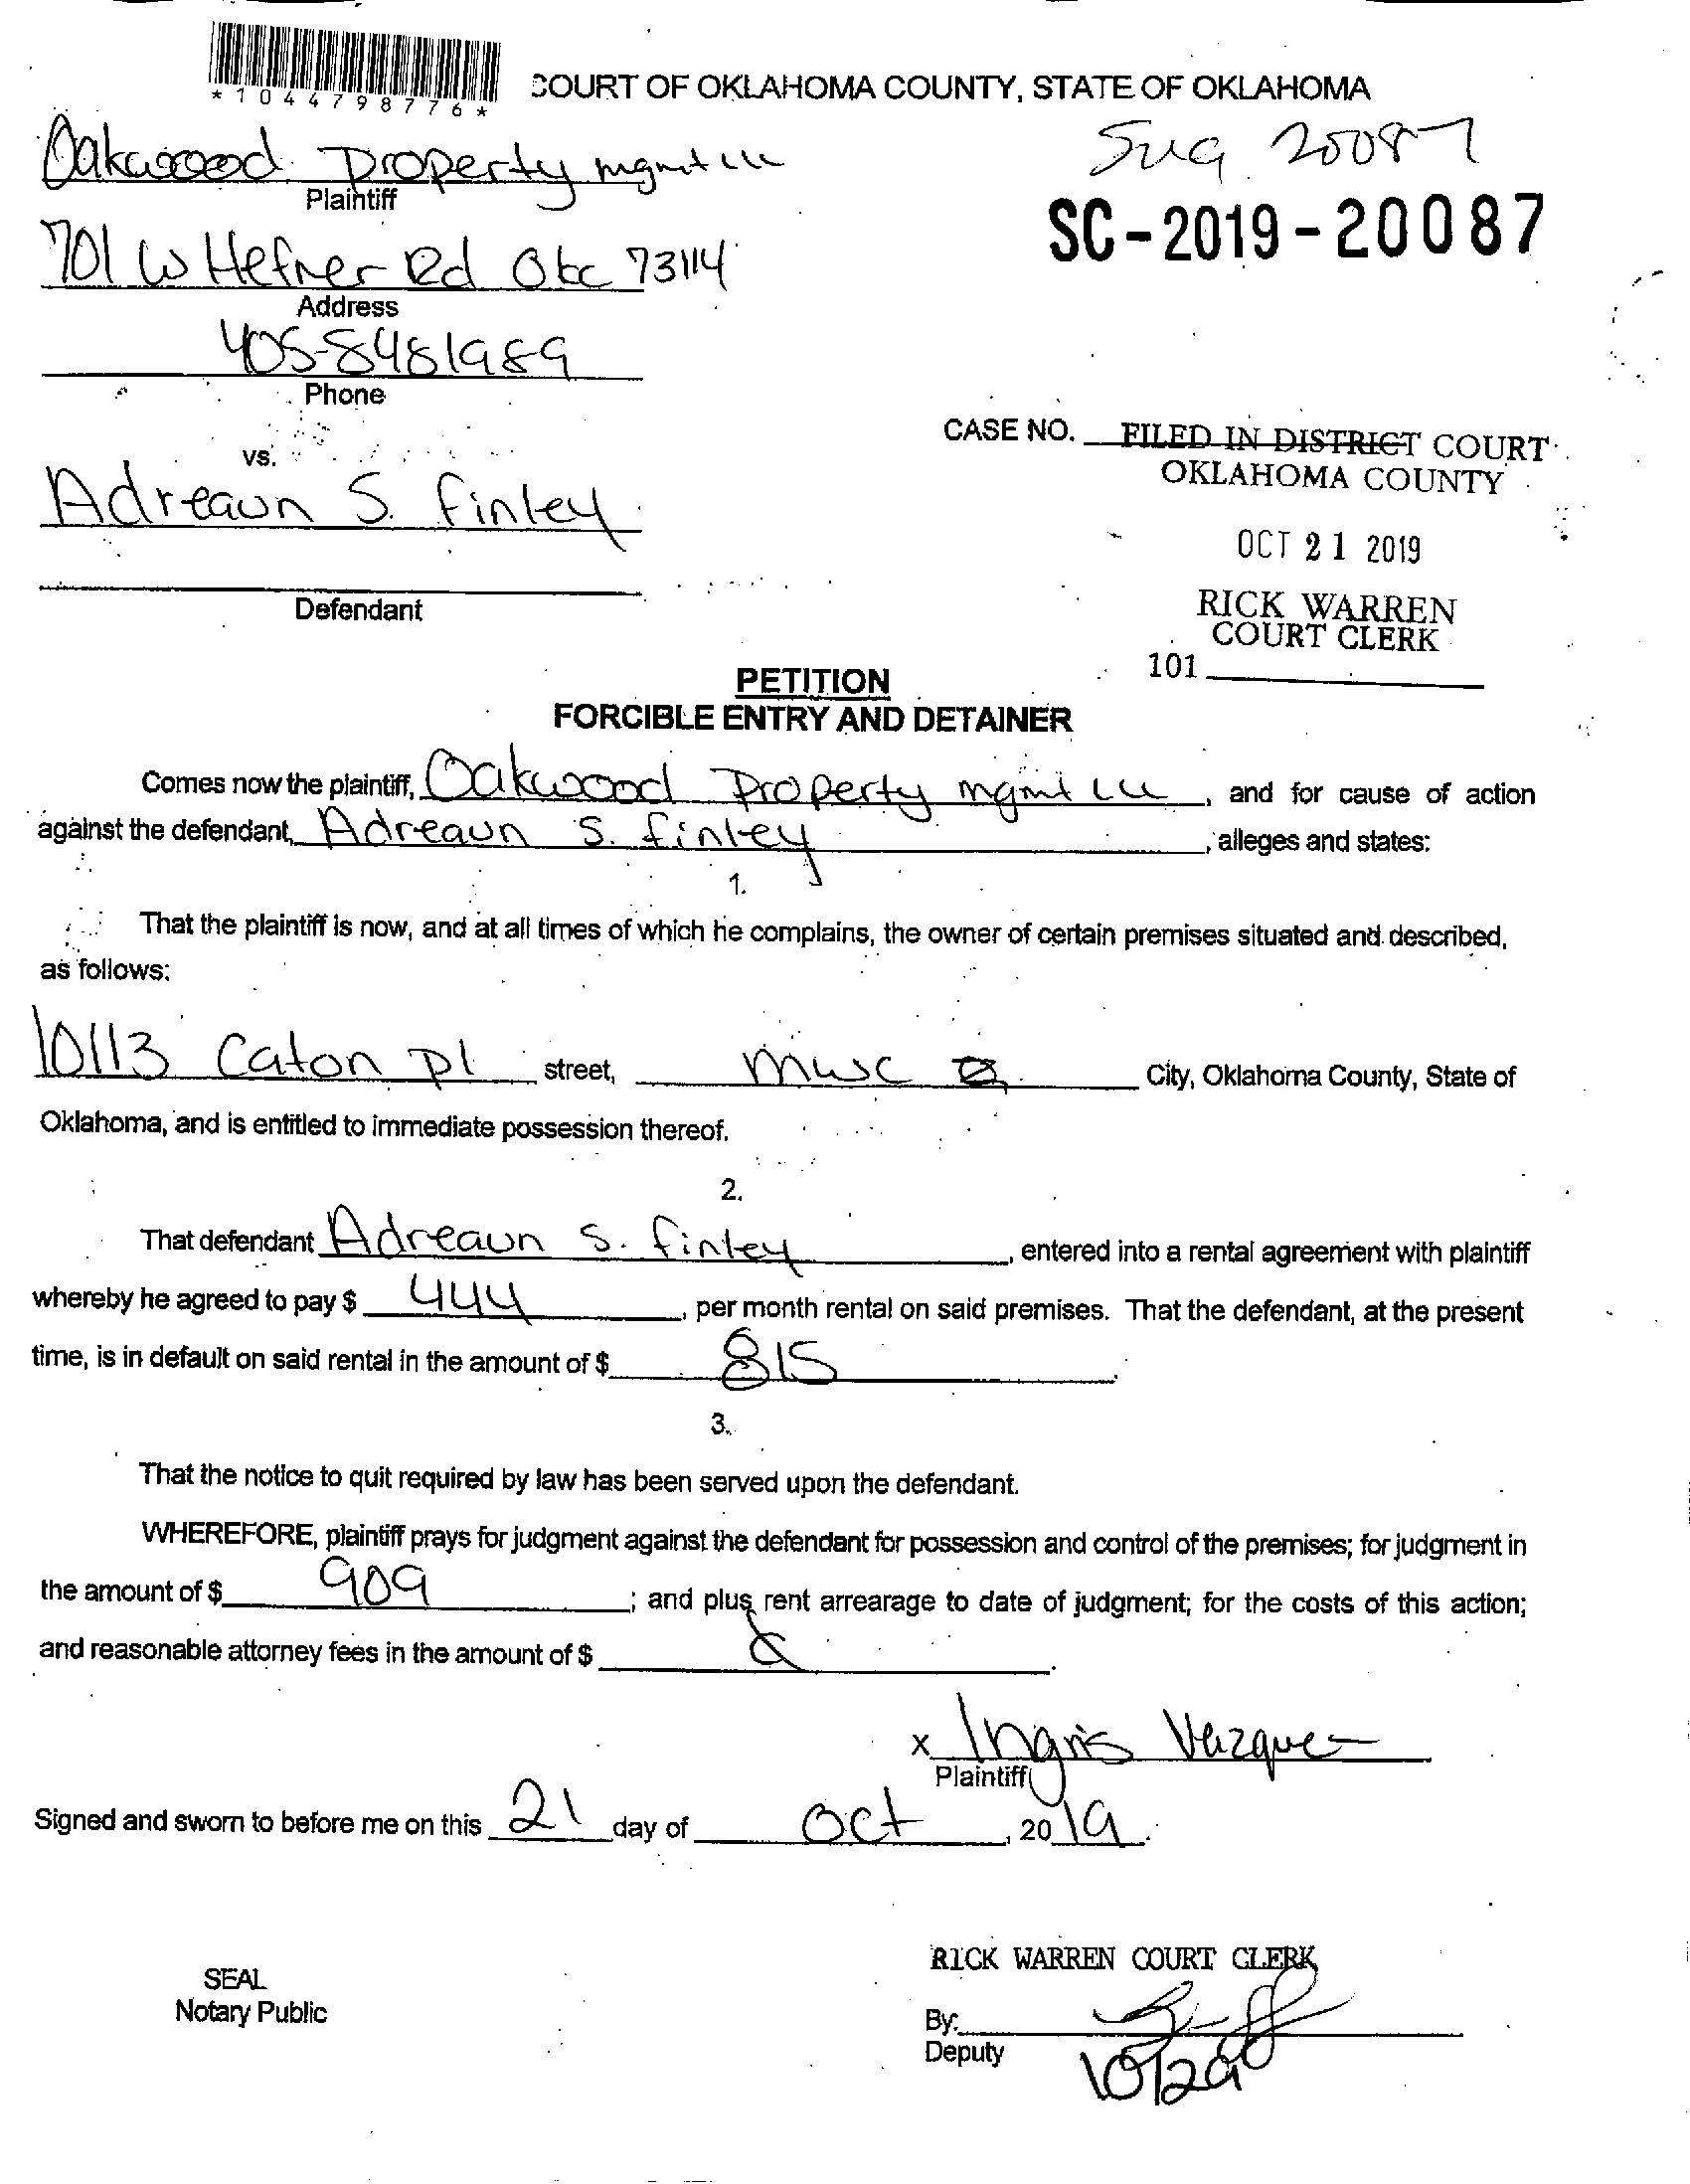 *1044798776*
COURT OF OKLAHOMA COUNTY, STATE OF OKLAHOMA
Oakwood Property mgmt llc
Plaintiff
20087
SC-2019-20087
701 W Hefner Rd Okc 73114
Address
405-8481989
Phone
CASE NO.
FILED IN DISTRICT COURT
OKLAHOMA COUNTY
vs.
Adreaun S. Finley
OCT 21 2019
Defendant
RICK WARREN
COURT CLERK
101
PETITION
FORCIBLE ENTRY AND DETAINER
Comes now the plaintiff, Oakwood Property mgmt LLC, and for cause of action
against the defendant, Adreaun S. Finley, alleges and states:
1.
That the plaintiff is now, and at all times of which he complains, the owner of certain premises situated and described,
as follows:
10113 Caton Pl street, MWC City, Oklahoma County, State of
Oklahoma, and is entitled to immediate possession thereof.
2.
That defendant Adreaun S. Finley, entered into a rental agreement with plaintiff
whereby he agreed to pay $ 444, per month rental on said premises. That the defendant, at the present
time, is in default on said rental in the amount of $ 815.
3.
That the notice to quit required by law has been served upon the defendant.
WHEREFORE, plaintiff prays for judgment against the defendant for possession and control of the premises; for judgment in
the amount of $ 909; and plus rent arrearage to date of judgment; for the costs of this action;
and reasonable attorney fees in the amount of $
x Ingris Vazquez
Plaintiff
Signed and sworn to before me on this 21 day of Oct, 2019.
RICK WARREN COURT CLERK
SEAL
Notary Public
By:
Deputy
10/29